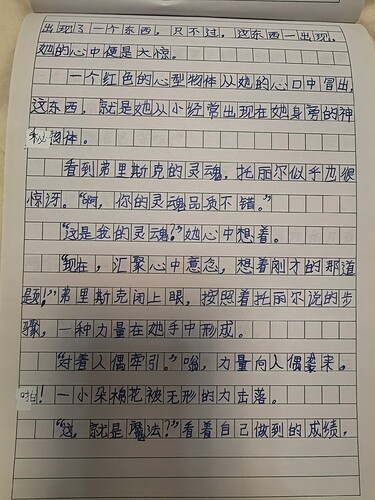 出现了一个东西，只不过，这东西一出现，
她的心中便是大惊。
一个红色的心型物体从她的心口中冒出，
这东西，就是她从小经常出现在她身旁的神
秘物体。
看到弗里斯克的灵魂，托丽尔似乎也很
惊讶。“啊，你的灵魂品质不错。”
“这是我的灵魂？”她心中想着。
“现在，汇聚心中意念，想着刚才的那道
题！”弗里斯克闭上眼，按照着托丽尔说的步
骤，一种力量在她手中形成。
“好着人偶牵引。”嗡，力量向人偶袭来。
啪！一小朵棉花被无形的力击落。
“这，就是魔法？”看着自己做到的成绩，